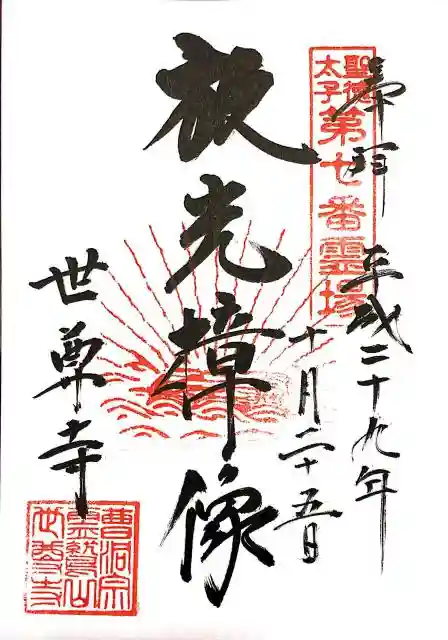 奉拝 平成二十九年
十月二十五日
聖徳太子第七番霊場
放光樟像
世尊寺
曹洞宗霊鷲山世尊寺